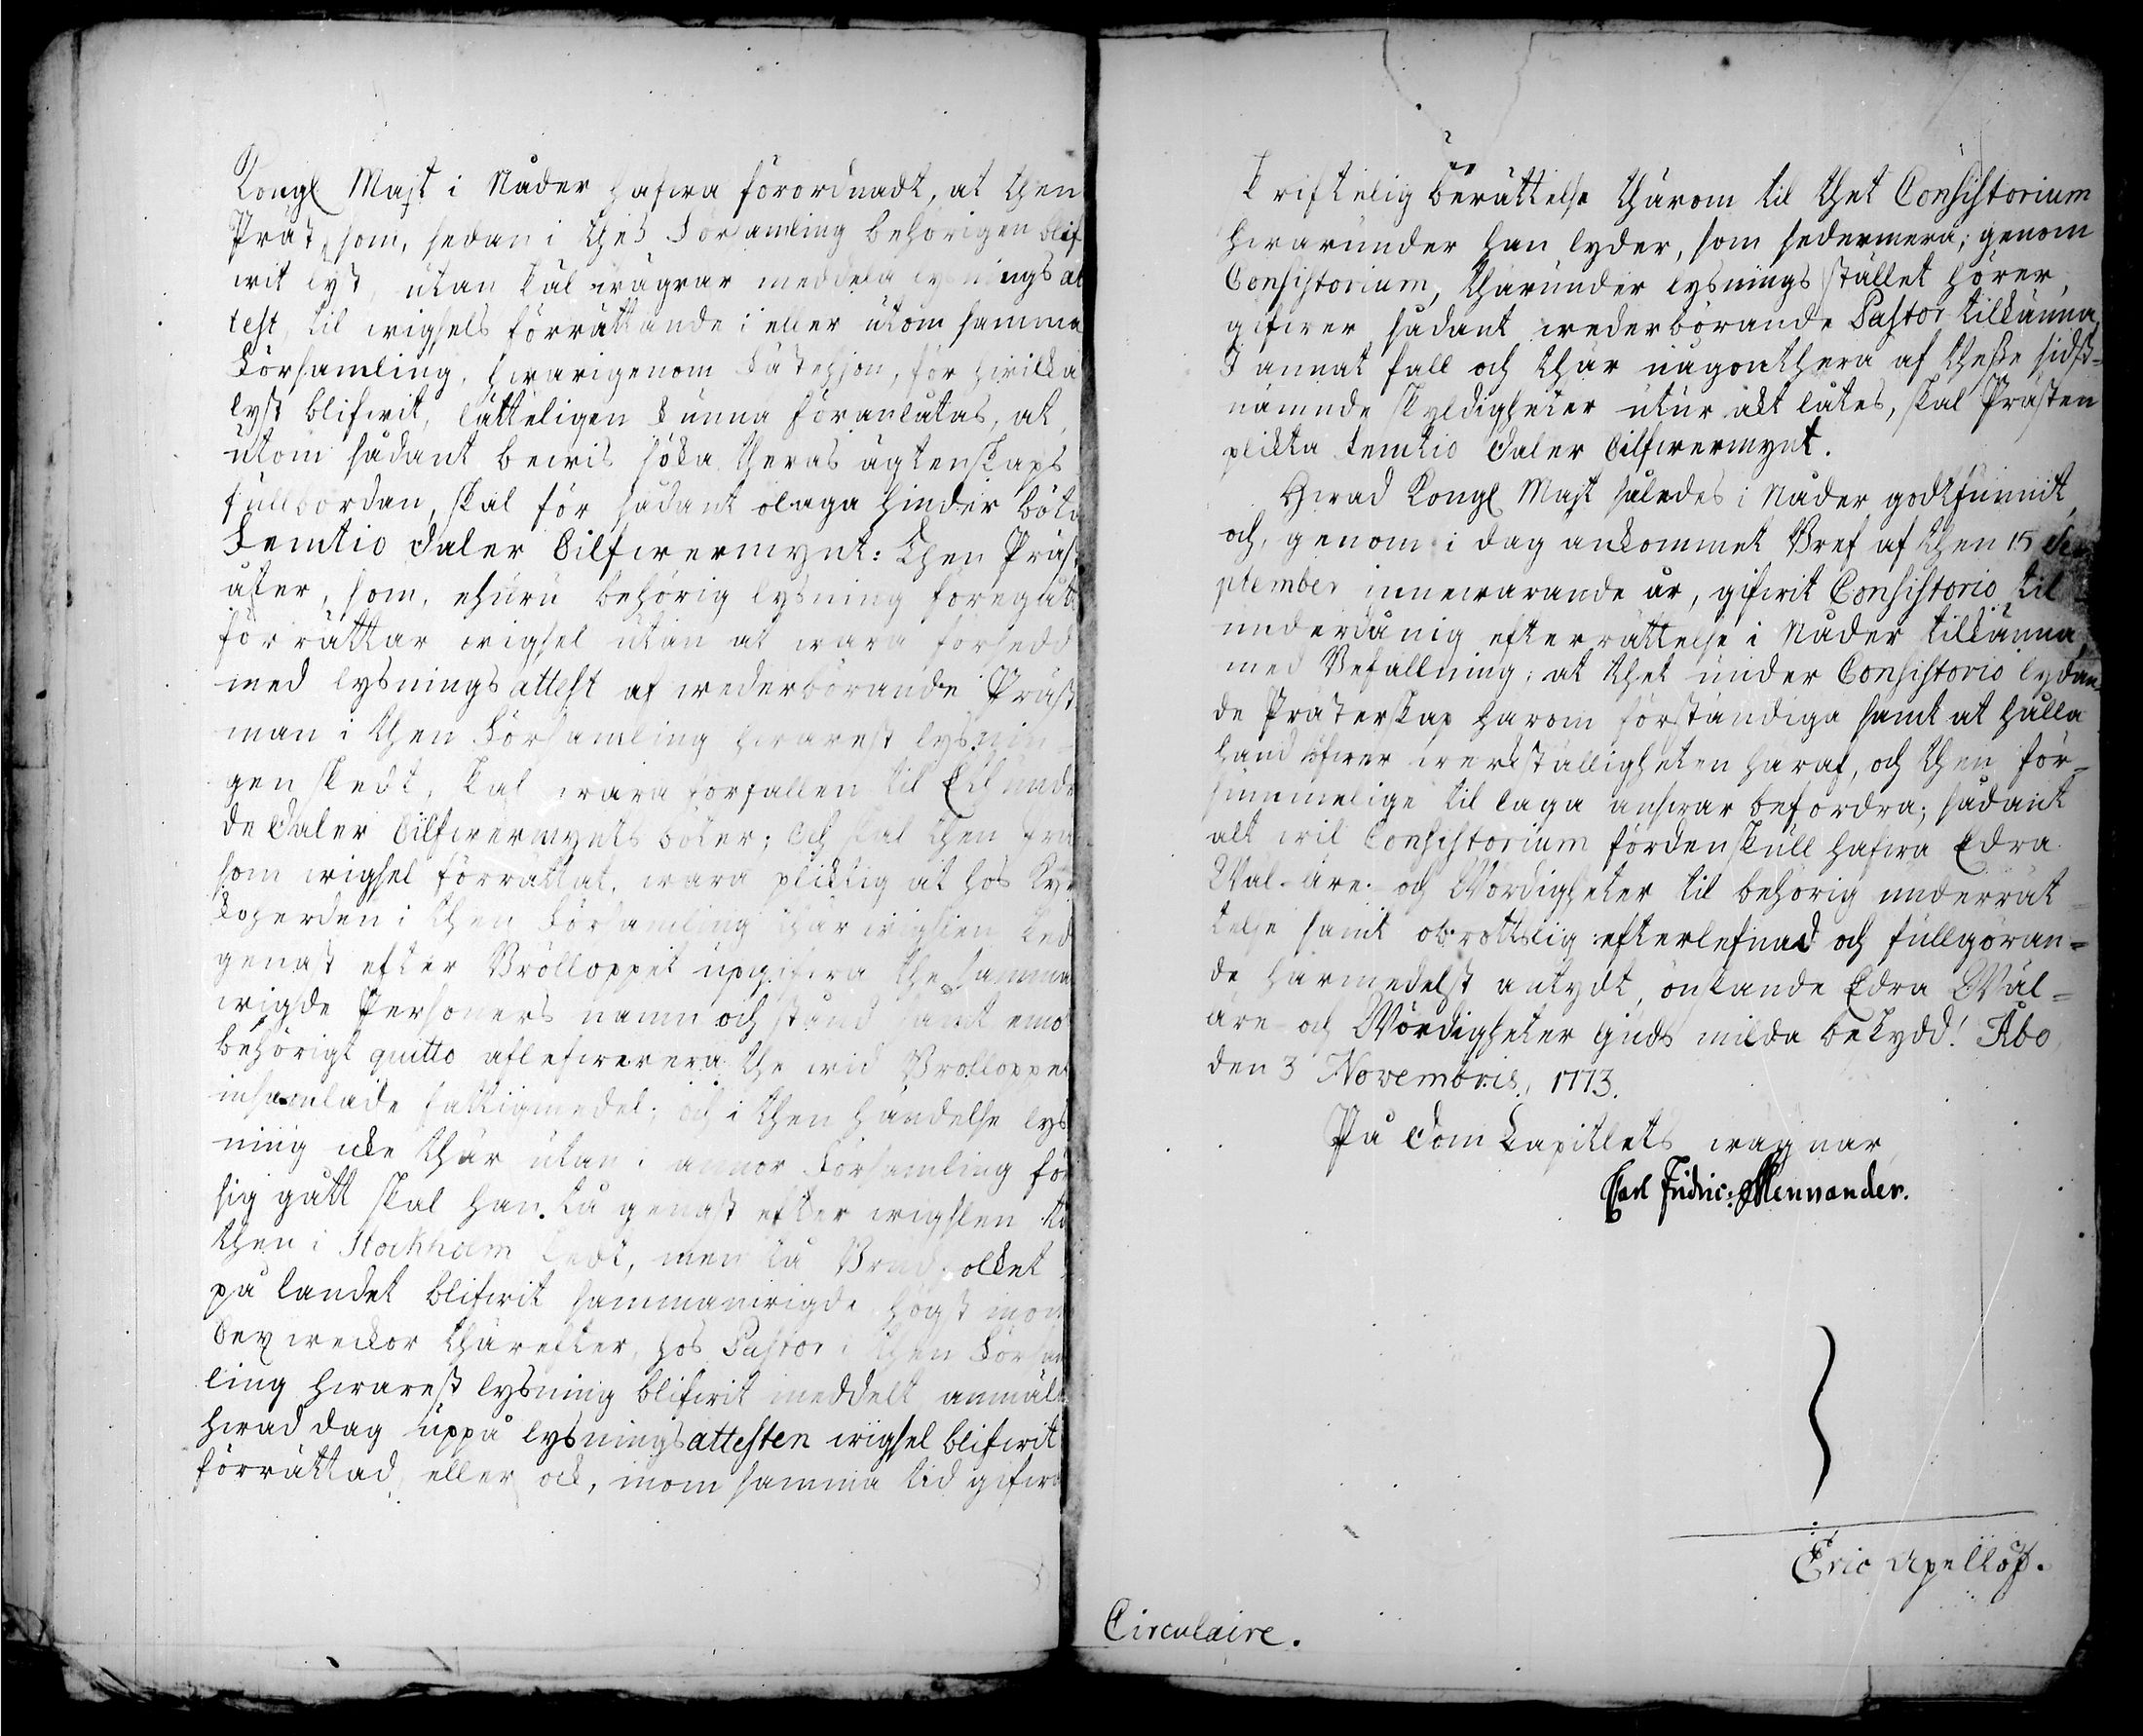 Kongl Majt i Nåder hafwa förordnadt, at then
Präst, som, sedan i thes Församling behörigen blif
wit lyst, utan skäl wägrar meddela lysnings at
test, til wigsels förrättande i eller utom samma
Församling, hwarigenom Fästehjon, för hwilka
lyst blifwit, lätteligen kunna föranlåtas, at,
utom sådant bewis söka theras ägtenskaps
fullbordan, skal för sådant olaga hinder böta
Femtio daler Silfwermynt: Then Präst
åter, som, ehuru behörig lysning föregått
förrättar wigsel utan at wara försedd
med lysnings attest af wederbörande Präst
man i then Församling hwarest lysnin-
gen skedt, skal wara förfallen til Etthundra
de daler Silfwermynts böter; och skal then Prä
som wigsel förrättat, wara pliktig at hos Kyr
koherden i then Församling thär wigslen skedt
genast efter Brölloppet upgifwa the samma
wigde Personers namn och stånd samt emo
behörigt quitto aflefwerera the wid Brölloppet
insamlade fattigmedel; och i then händelse lys
ning icke thär utan i annor Församling för
sig gått skal han, tå genast efter wigslen tå
then i Stockholm skedt, men tå Brudfolket
på landet blifwit sammanwigde högst inom
Sex weckor thärefter, hos Pastor i then Försam
ling hwarest lysning blifwit meddelt anmäla
hwad dag uppå lysningsattesten wigsel blifwit
förrättad, eller ock, inom samma tid gifwa
skriftelig berättelse thärom til thet Consistorium
hwarunder han lyder, som sedermera, genom
Consistorium, tharunder lysnings stället hörer,
gifwer sådant wederbörande Pastor tillkänna,
I annat fall och thär någonthera af thesse sidst-
nämnde skyldigheter utur akt låtes, skal Prästen
plickta femtio daler Silfwermynt.
Hwad Kongl Majt således i Nåder godtfunnit,
och, genom i dag ankommet Bref af then 15 Se-
ptember innewarande år, gifwit Consistorio til
underdånig efterrättelse i Nåder tilkänna,
med Befallning; at thet under Consistorio lydan
de Prästerskap härom förständiga samt at hålla
hand öfwer werkställigheten häraf, och then för-
summelige til laga answar befordra; sådant
alt wil Consistorium fördenskull hafwa Edra
Wäl-äre- och Wördigheter til behörig underrät-
telse samt obrottslig efterlefnad och fullgöran-
de härmedelst antydt, önskande Edra Wäl-
äre- och Wördigheter Guds milda beskydd! Åbo,
den 3 Novembris, 1773.
På Dom Capitlets wägnar,
Carl Fridric: Mennander.
Eric Apellöf.
Circulaire.